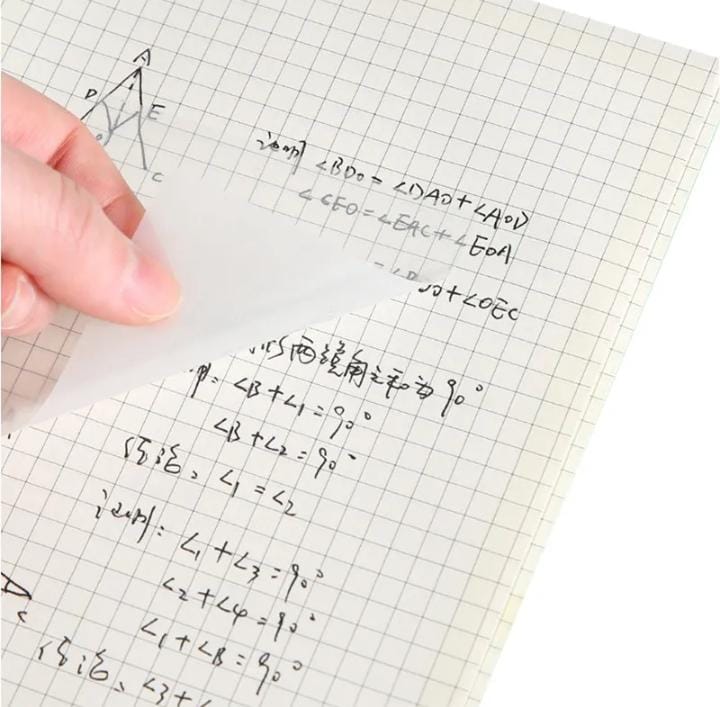 A
D E
O
C
证明 ∠BDO = ∠DAO + ∠AOD
∠CEO = ∠EAC + ∠EOA
+∠OEC
两锐角之和为 90°
∠B + ∠1 = 90°
∠B + ∠2 = 90°
结论: ∠1 = ∠2
证明: ∠1 + ∠3 = 90°
∠2 + ∠4 = 90°
∠1 + ∠B = 90°
结论: ∠3 +